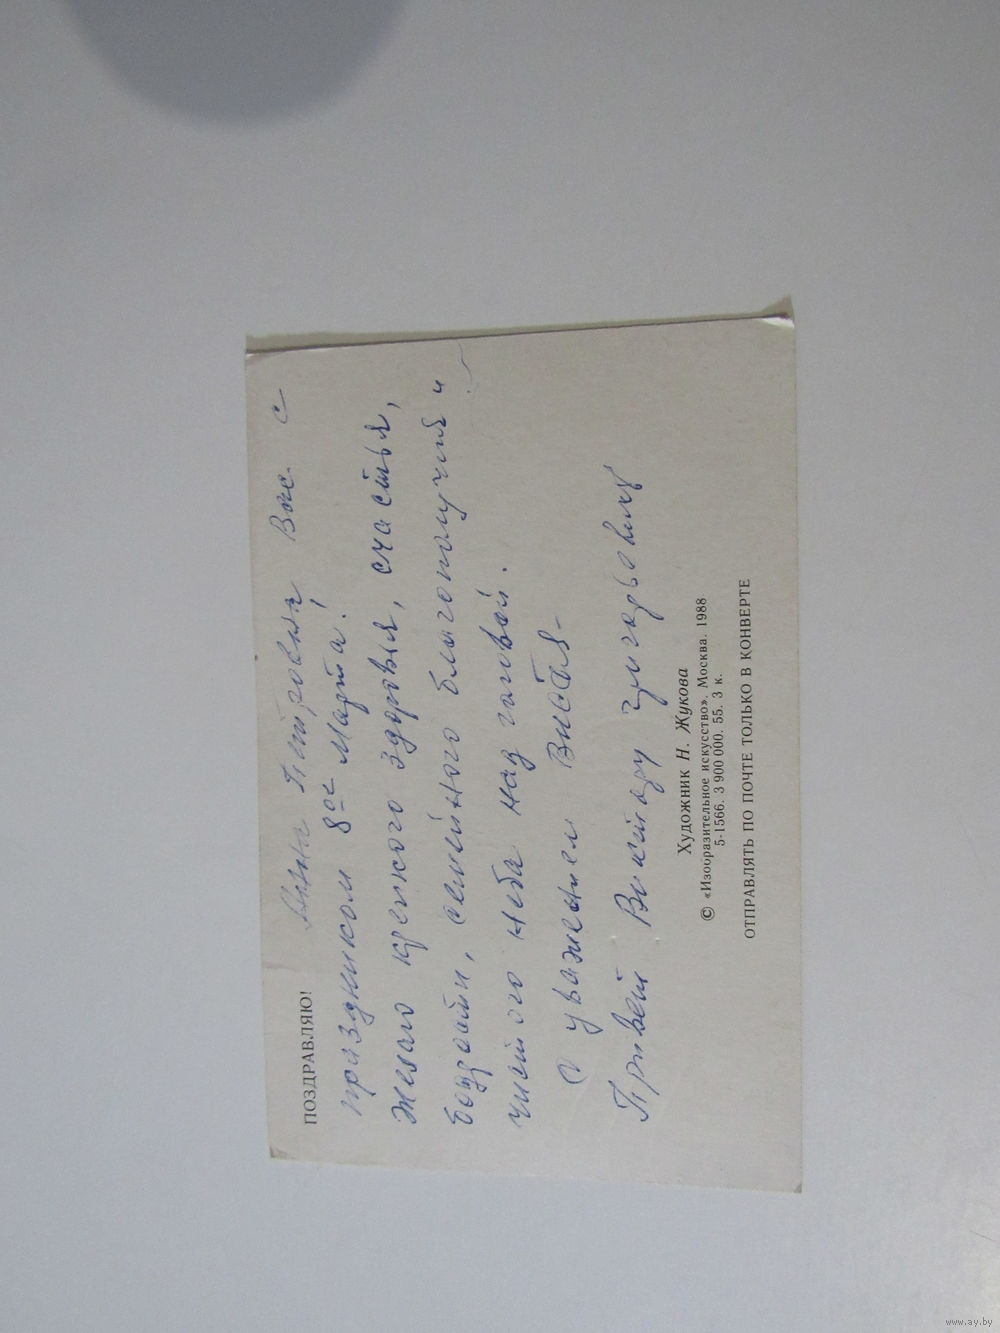 ПОЗДРАВЛЯЮ!
Анна Петровна Вас с
праздником 8ое Марта!
Желаю крепкого здоровья, счастья,
бодрости, семейного благополучия и
чистого неба над головой.
С уважением
Привет Виктору Григорьевичу
Художник Н. Жукова
© «Изобразительное искусство». Москва. 1988
5-1566. 3 900 000. 55. 3 к.
ОТПРАВЛЯТЬ ПО ПОЧТЕ ТОЛЬКО В КОНВЕРТЕ
www.ay.by